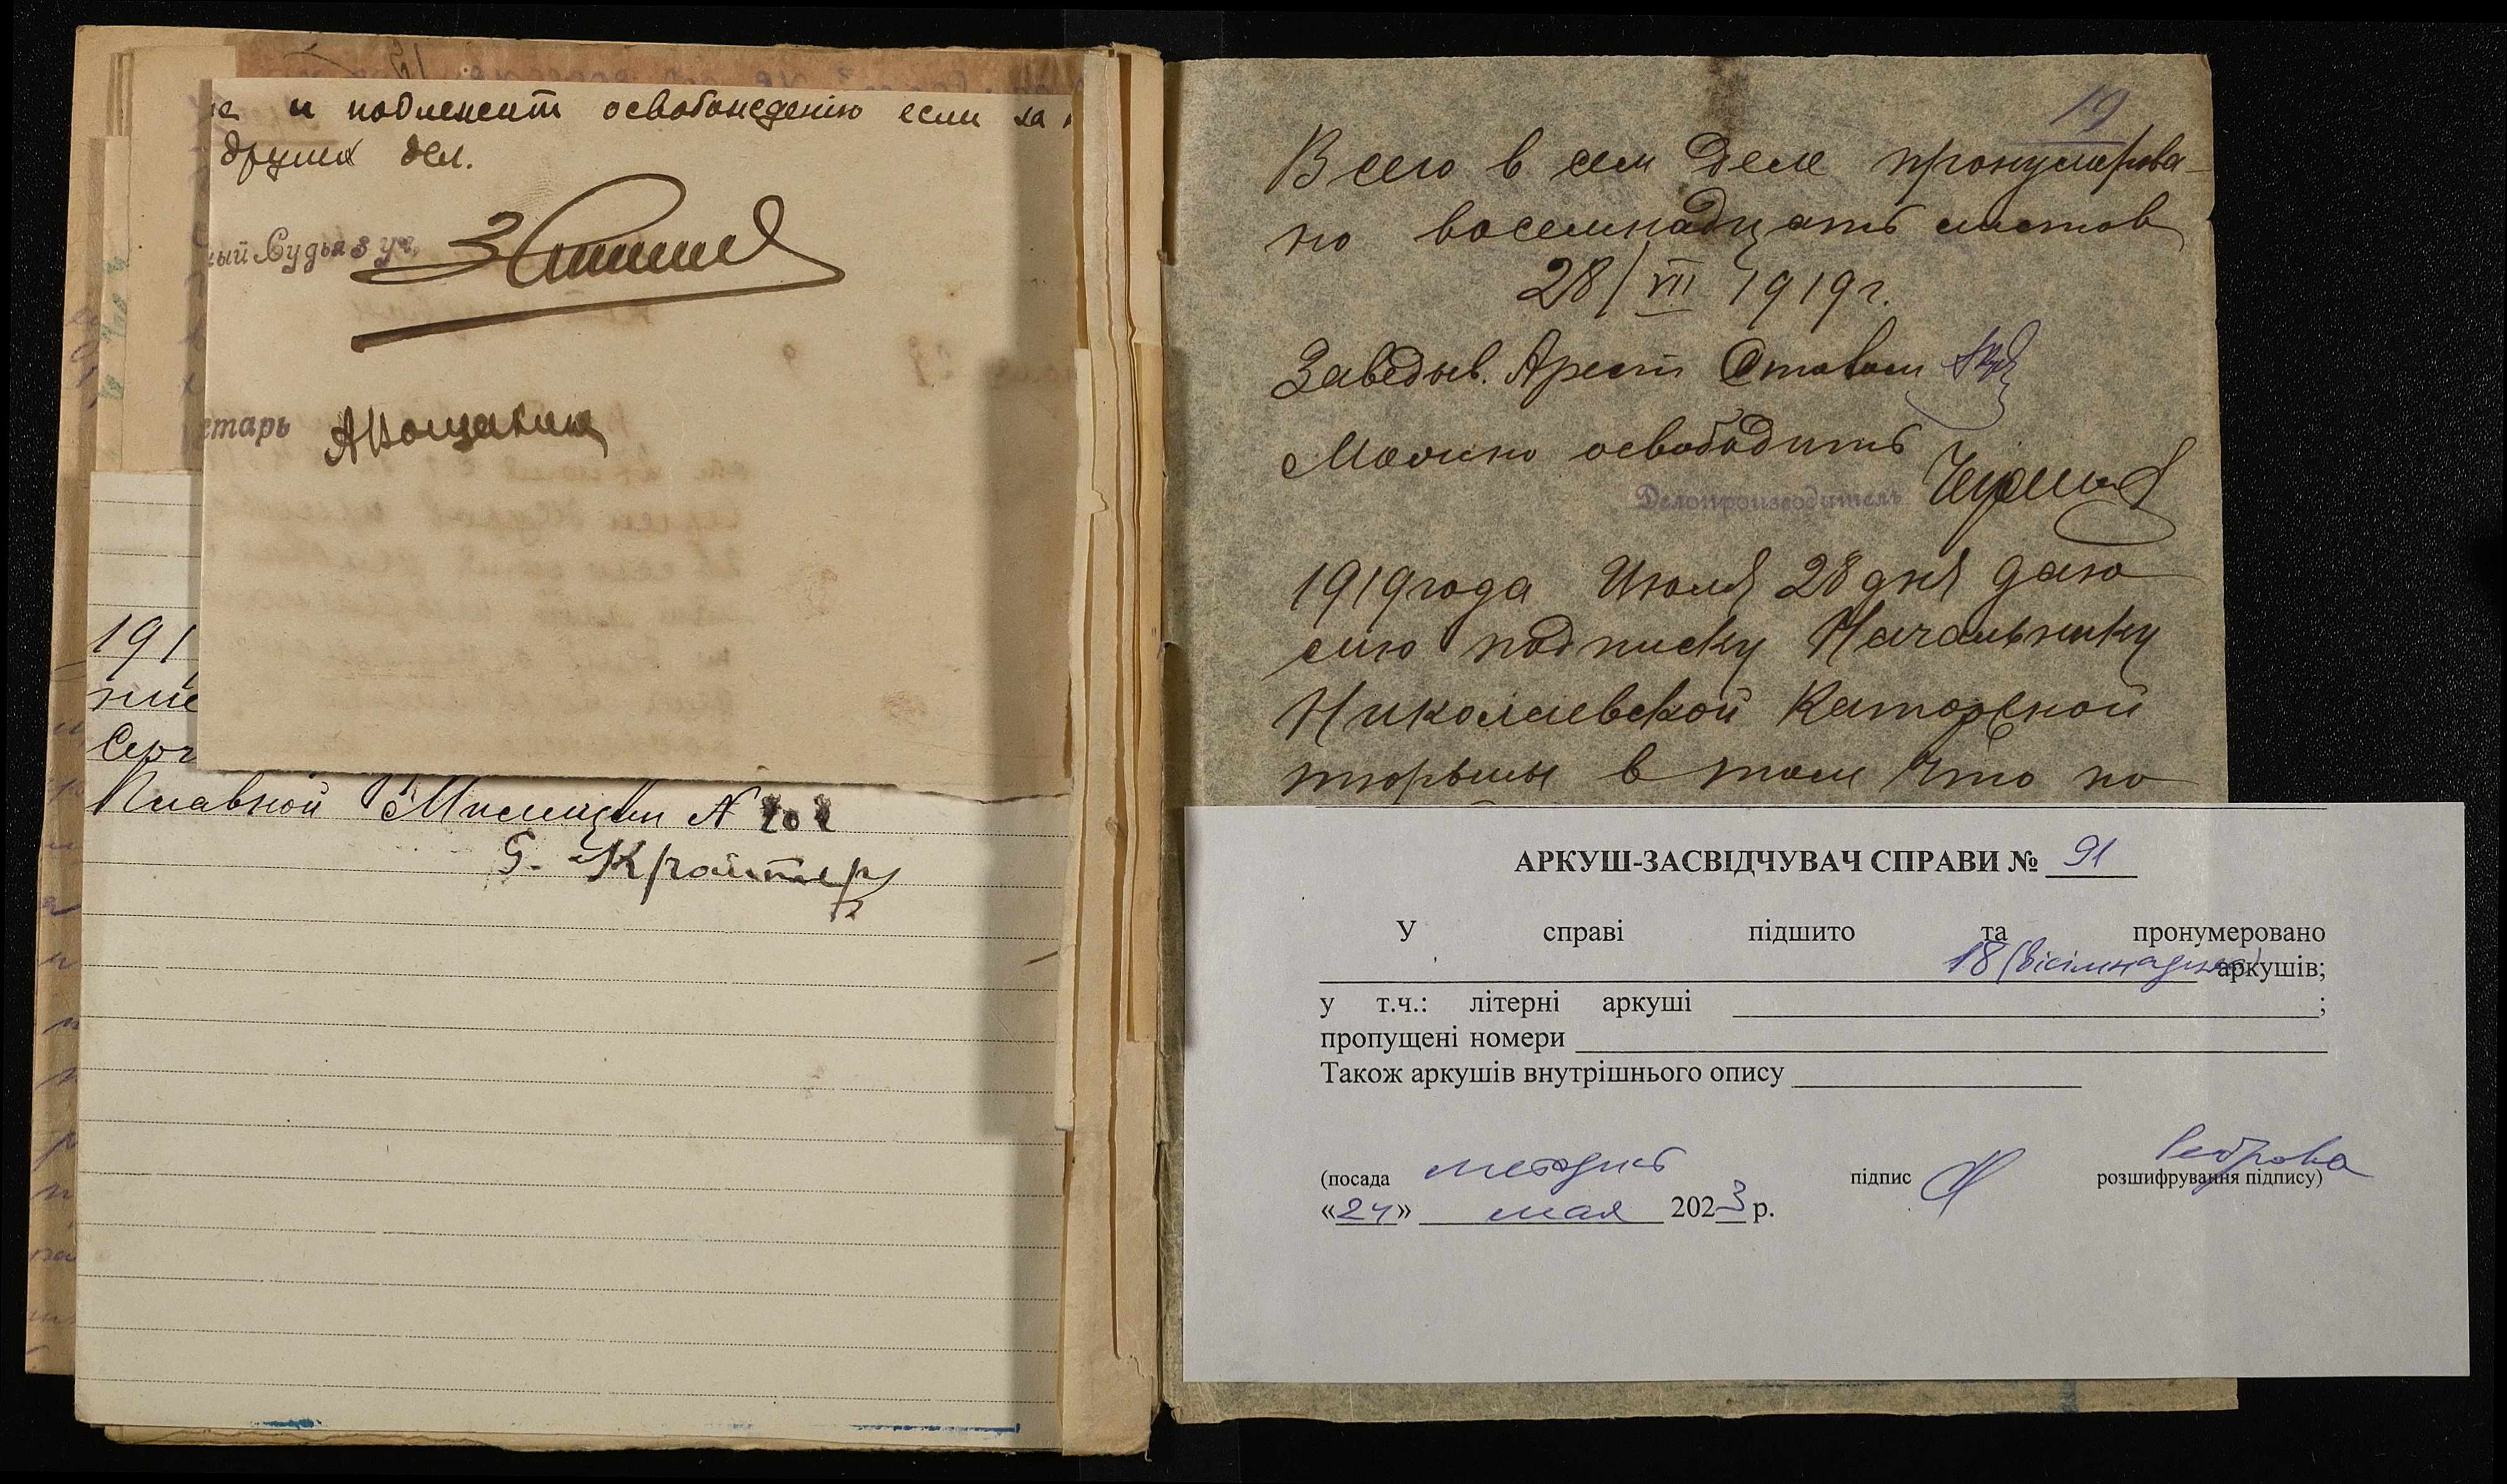 и подлежит освобождению если за
других дел.
ый Судья 3 уч.
етарь
191
ние
Серг
Главной Милиции N
Г. Крайтер
19
Всего в сем деле пронумерова-
но восемнадцать листов
28/VII 1919 г.
Заведыв. Арест Столом
Можно освободить
Делопроизводитель
1919 года Июля 28 дня даю
сию подписку Начальнику
Николаевской Каторжной
тюрьмы в том что по
АРКУШ-ЗАСВІДЧУВАЧ СПРАВИ № 91
У справі підшито та пронумеровано
18 (вісімнадцять) аркушів;
у т.ч.: літерні аркуші ;
пропущені номери
Також аркушів внутрішнього опису
(посада методист підпис Реброва розшифрування підпису)
«24» мая 2023 р.